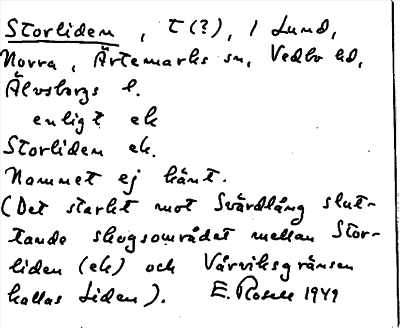 Storliden, t(?), i Lund,
Norra, Ärtemarks sn, Vedbo hd,
Älvsborgs l.
enligt ek
Storliden ek.
Namnet ej känt.
(Det starkt mot Svärdlång slut-
tande skogsområdet mellan Stor-
liden (ek) och Vårviksgränsen
kallas Liden). E. Rosell 1949